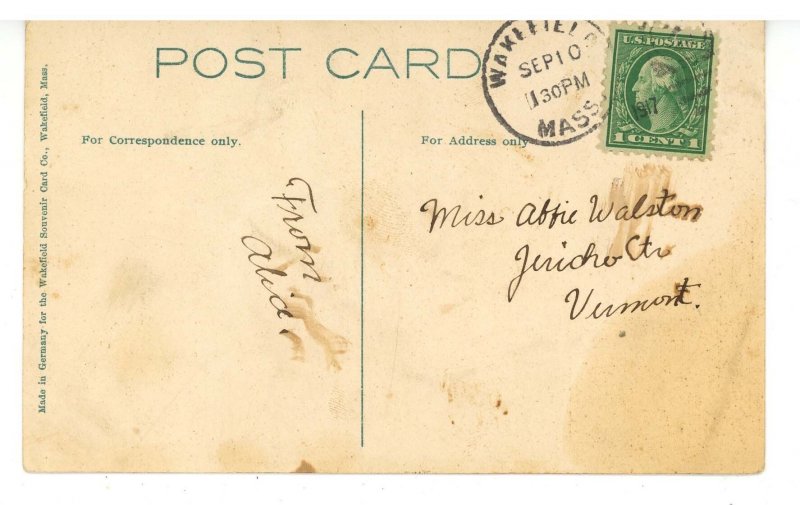 POST CARD
WAKEFIELD
SEP 10
1130PM
MASS.
1917
U.S. POSTAGE
1 CENT 1
For Correspondence only.
For Address only
From
Alice
Miss Abbie Walston
Jericho Ctr
Vermont.
Made in Germany for the Wakefield Souvenir Card Co., Wakefield, Mass.